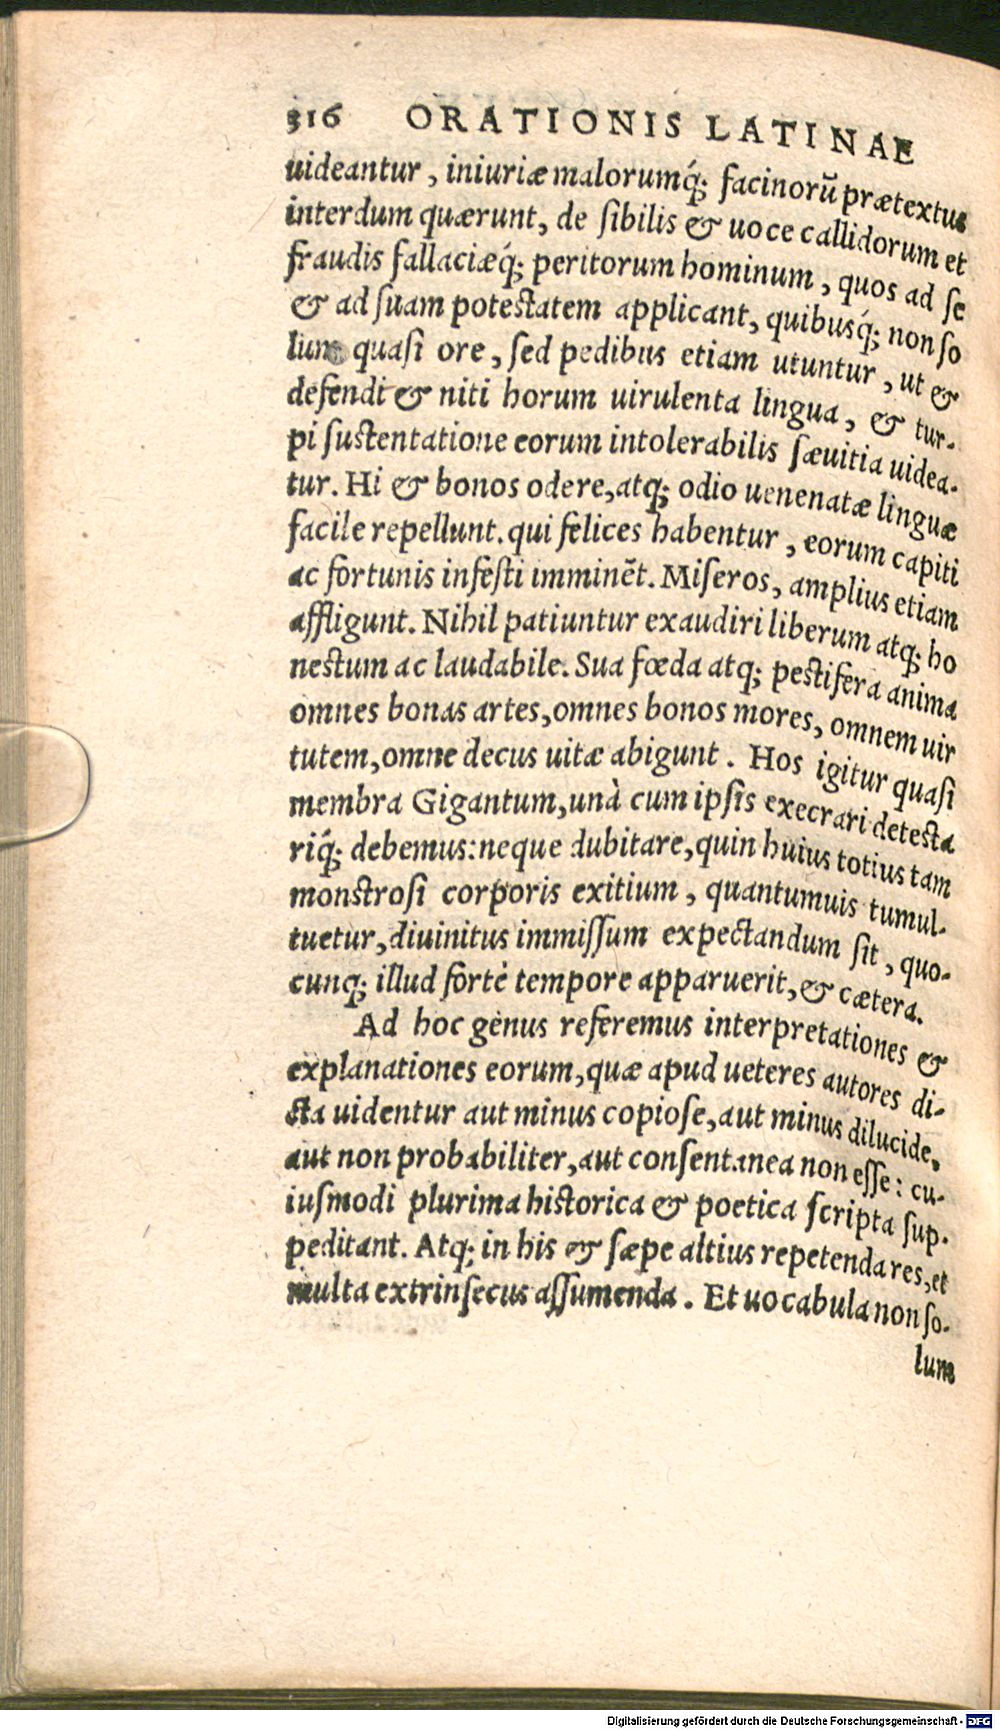 316 ORATIONIS LATINAE
uideantur, iniuriæ malorumq́; facinorū prætextus
interdum quærunt, de ſibilis & uoce callidorum et
fraudis fallaciæq́; peritorum hominum, quos ad ſe
& ad ſuam poteſtatem applicant, quibusq́; non ſo
lum quaſi ore, ſed pedibus etiam utuntur, ut &
defendi & niti horum uirulenta lingua, & tur-
pi ſuſtentatione eorum intolerabilis ſæuitia uidea-
tur. Hi & bonos odere, atq; odio uenenatæ linguæ
facile repellunt. qui felices habentur, eorum capiti
ac fortunis infeſti imminēt. Miſeros, amplius etiam
affligunt. Nihil patiuntur exaudiri liberum atq; ho
neſtum ac laudabile. Sua fœda atq; peſtifera anima
omnes bonas artes, omnes bonos mores, omnem uir
tutem, omne decus uitæ abigunt. Hos igitur quaſi
membra Gigantum, unà cum ipſis execrari deteſta
riq́; debemus: neque dubitare, quin huius totius tam
monſtroſi corporis exitium, quantumuis tumul-
tuetur, diuinitus immiſſum expectandum ſit, quo-
cunq; illud fortè tempore apparuerit, & cætera.
Ad hoc genus referemus interpretationes &
explanationes eorum, quæ apud ueteres autores di-
cta uidentur aut minus copioſe, aut minus dilucide,
aut non probabiliter, aut conſentanea non eſſe: cu-
iuſmodi plurima hiſtorica & poetica ſcripta ſup-
peditant. Atq; in his & ſæpe altius repetenda res, et
multa extrinſecus aſſumenda. Et uocabula non ſo-
lum
Digitalisierung gefördert durch die Deutsche Forschungsgemeinschaft - DFG